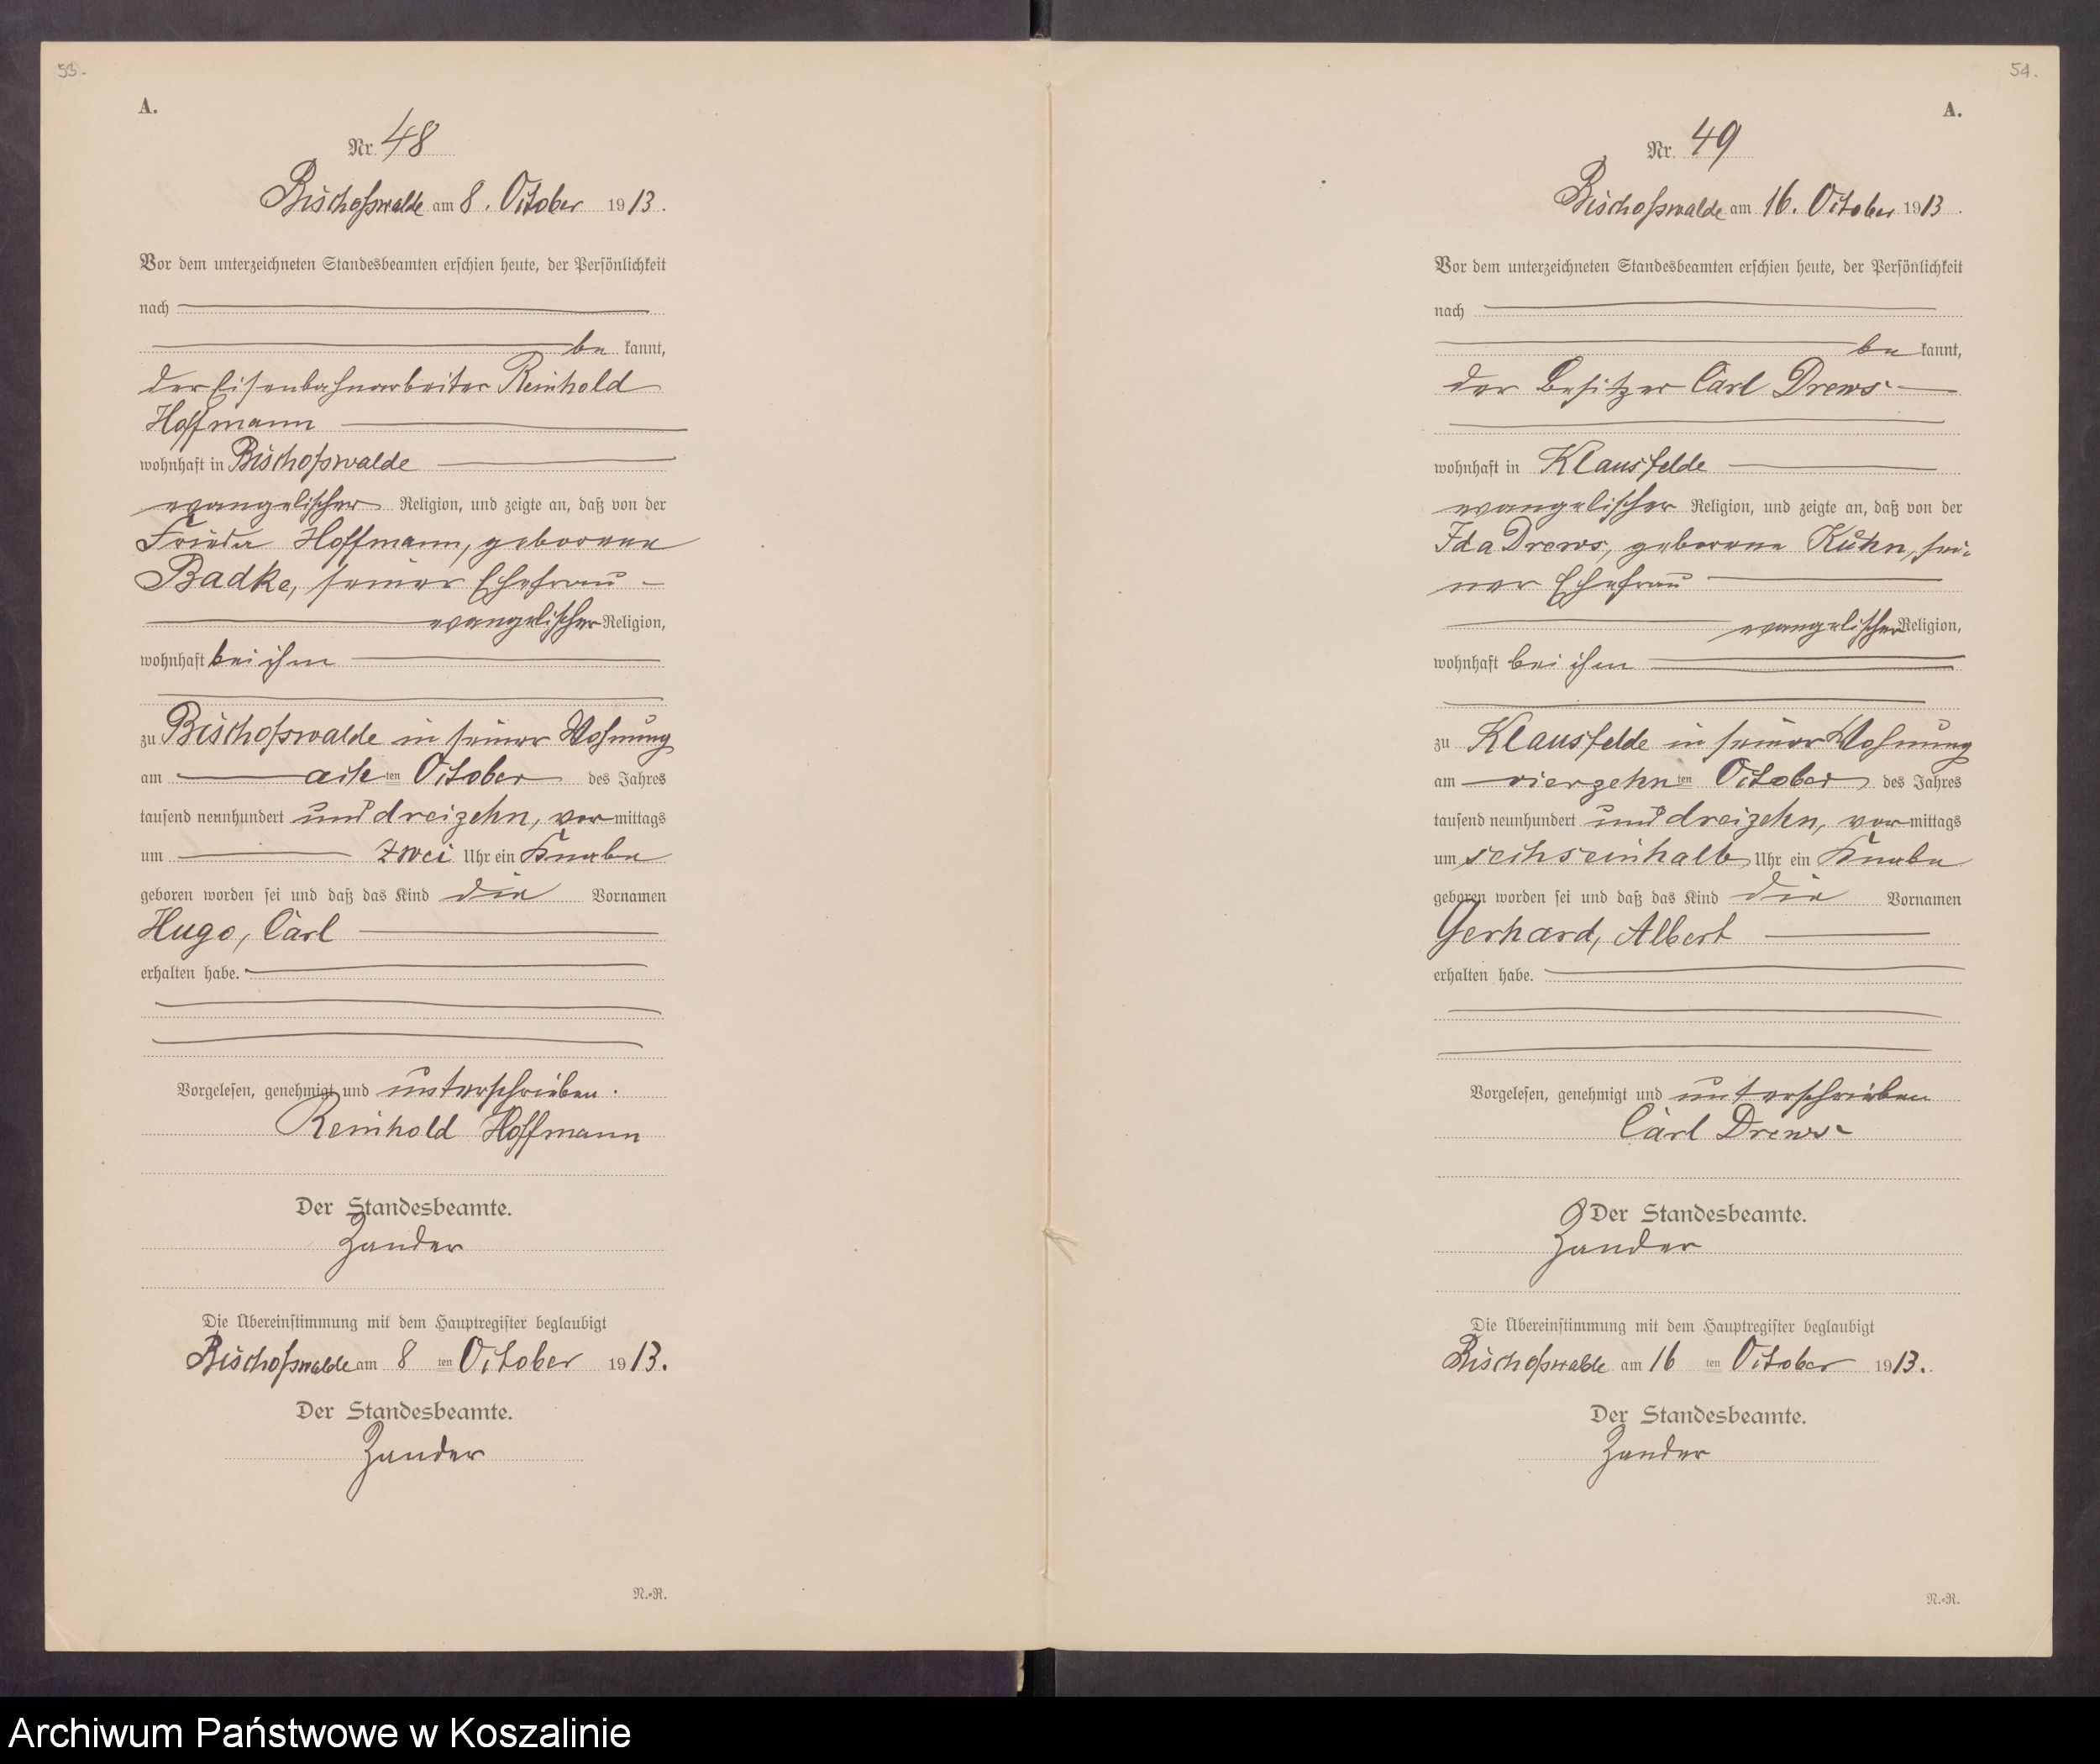 53.
A.
Nr. 48
Bischofswalde am 8. October 1913.
Vor dem unterzeichneten Standesbeamten erschien heute, der Persönlichkeit
nach
be kannt,
der Eisenbahnarbeiter Reinhold
Hoffmann
wohnhaft in Bischofswalde
evangelischer Religion, und zeigte an, daß von der
Frieda Hoffmann, geborene
Badke, seiner Ehefrau
evangelischer Religion,
wohnhaft bei ihm
zu Bischofswalde in seiner Wohnung
am achten October des Jahres
tausend neunhundert und dreizehn, vormittags
um zwei Uhr ein Knabe
geboren worden sei und daß das Kind die Vornamen
Hugo, Carl
erhalten habe.
Vorgelesen, genehmigt und unterschrieben.
Reinhold Hoffmann
Der Standesbeamte.
Zander
Die Übereinstimmung mit dem Hauptregister beglaubigt
Bischofswalde am 8ten October 1913.
Der Standesbeamte.
Zander
N.=R.
54.
A.
Nr. 49
Bischofswalde am 16. October 1913.
Vor dem unterzeichneten Standesbeamten erschien heute, der Persönlichkeit
nach
be kannt,
der Besitzer Carl Drews
wohnhaft in Klausfelde
evangelischer Religion, und zeigte an, daß von der
Ida Drews, geborene Kuhn, sei-
ner Ehefrau
evangelischer Religion,
wohnhaft bei ihm
zu Klausfelde in seiner Wohnung
am vierzehnten October des Jahres
tausend neunhundert und dreizehn, vormittags
um sechseinhalb Uhr ein Knabe
geboren worden sei und daß das Kind die Vornamen
Gerhard, Albert
erhalten habe.
Vorgelesen, genehmigt und unterschrieben
Carl Drews
Der Standesbeamte.
Zander
Die Übereinstimmung mit dem Hauptregister beglaubigt
Bischofswalde am 16ten October 1913.
Der Standesbeamte.
Zander
N.=R.
Archiwum Państwowe w Koszalinie